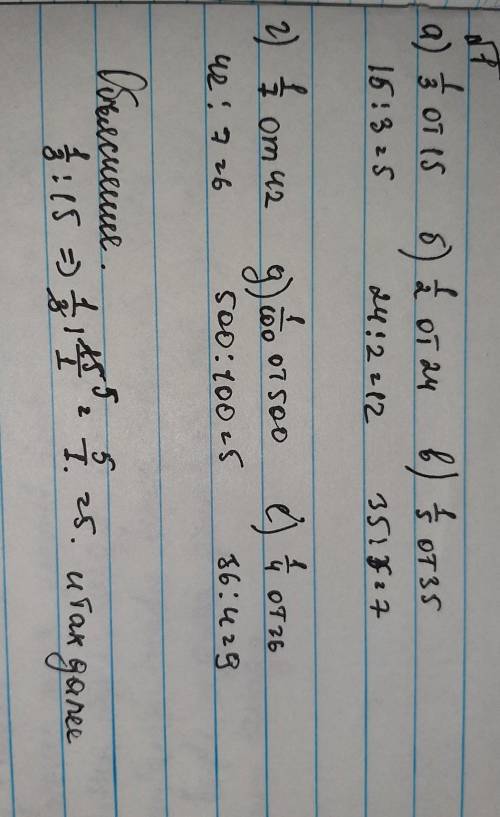 №1
а) 1/3 от 15 б) 1/2 от 24 в) 1/5 от 35
15:3=5 24:2=12 35:5=7
г) 1/7 от 42 д) 1/100 от 500 е) 1/4 от 36
42:7=6 500:100=5 36:4=9
Объяснение.
1/3 : 15 => 1/3 · 15/1 5 = 5/1 = 5. и так далее